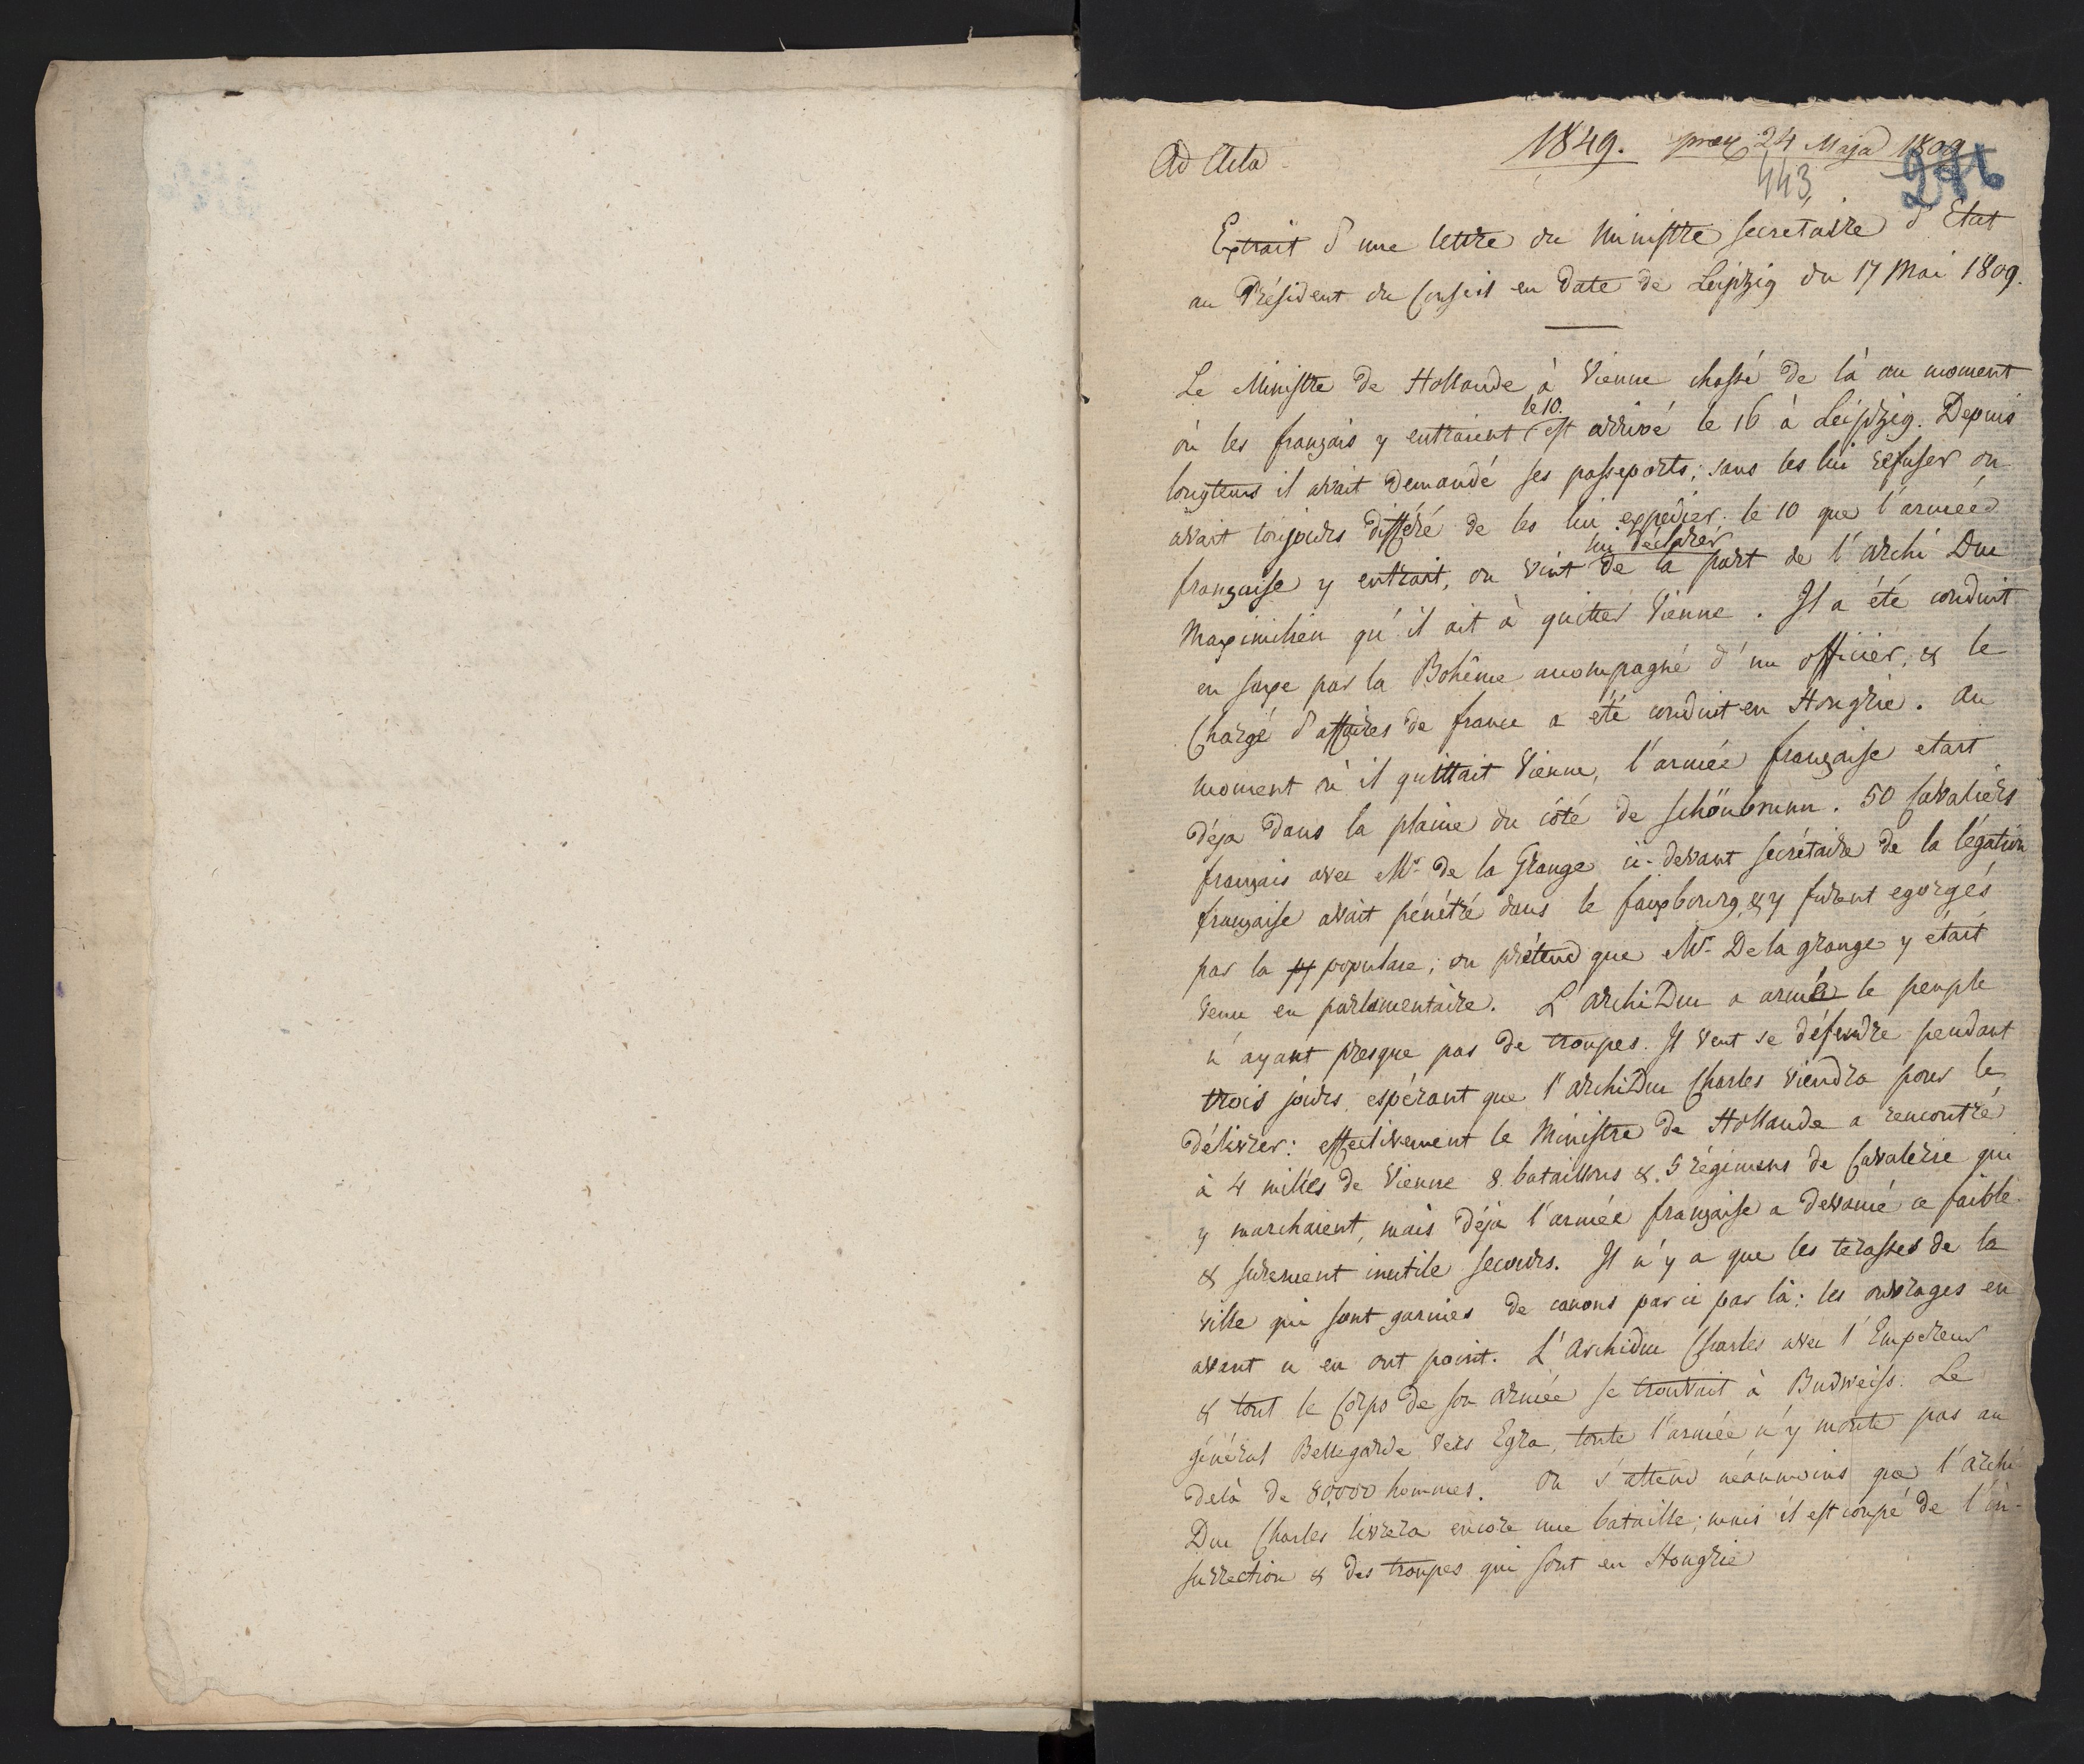 Ad Acta
1849. præs 24 Maja 1809
443
Extrait d'une lettre du Ministre secrétaire d'Etat
au Président du Conseil en date de Leipzig du 17 Mai 1809.
Le Ministre de Hollande à Vienne chassé de là au moment
le 10.
où les français y entraient est arrivé le 16 à Leipzig. Depuis
longtems il avait demandé ses passeports; sans les lui refuser on
avait toujours différé de les lui expedier: le 10 que l'armée
lui déclarer
française y entrait, on vint de la part de l'archi Duc
Maximilien qu'il ait à quitter Vienne. Il a été conduit
en saxe par la Bohême accompagné d'un officier, & le
Chargé d'affaires de france a été conduit en Hongrie. Au
moment où il quittait Vienne, l'armée française etait
déja dans la plaine du côté de schönbrunn. 50 Cavaliers
français avec Mr. de la Grange ci-devant secrétaire de la légation
française avait pénétré dans le fauxbourg, & y furent egorgés
par la populace; on prétend que Mr. De la grange y était
venu en parlamentaire. L'archiDuc a armé le peuple
n'ayant presque pas de troupes. Il veut se défendre pendant
trois jours, espérant que l'archiDuc Charles viendra pour le
délivrer: effectivement le Ministre de Hollande a rencontré
à 4 milles de Vienne 8. bataillons & 5 régimens de Cavalerie qui
y marchaient, mais déja l'armée française a devancé ce faible
& surement inutile secours. Il n'y a que les terasses de la
ville qui sont garnies de canons par ci par là: les ouvrages en
avant n'en ont point. L'Archiduc Charles avec l'Empereur
& tout le Corps de son armée se trouvait à Budweiss. Le
général Bellegarde vers Egra, toute l'armée n'y monte pas au
delà de 80,000 hommes. On s'attend néanmoins que l'archi
Duc Charles livrera encore une bataille; mais il est coupé de l'in-
surrection & des troupes qui sont en Hongrie